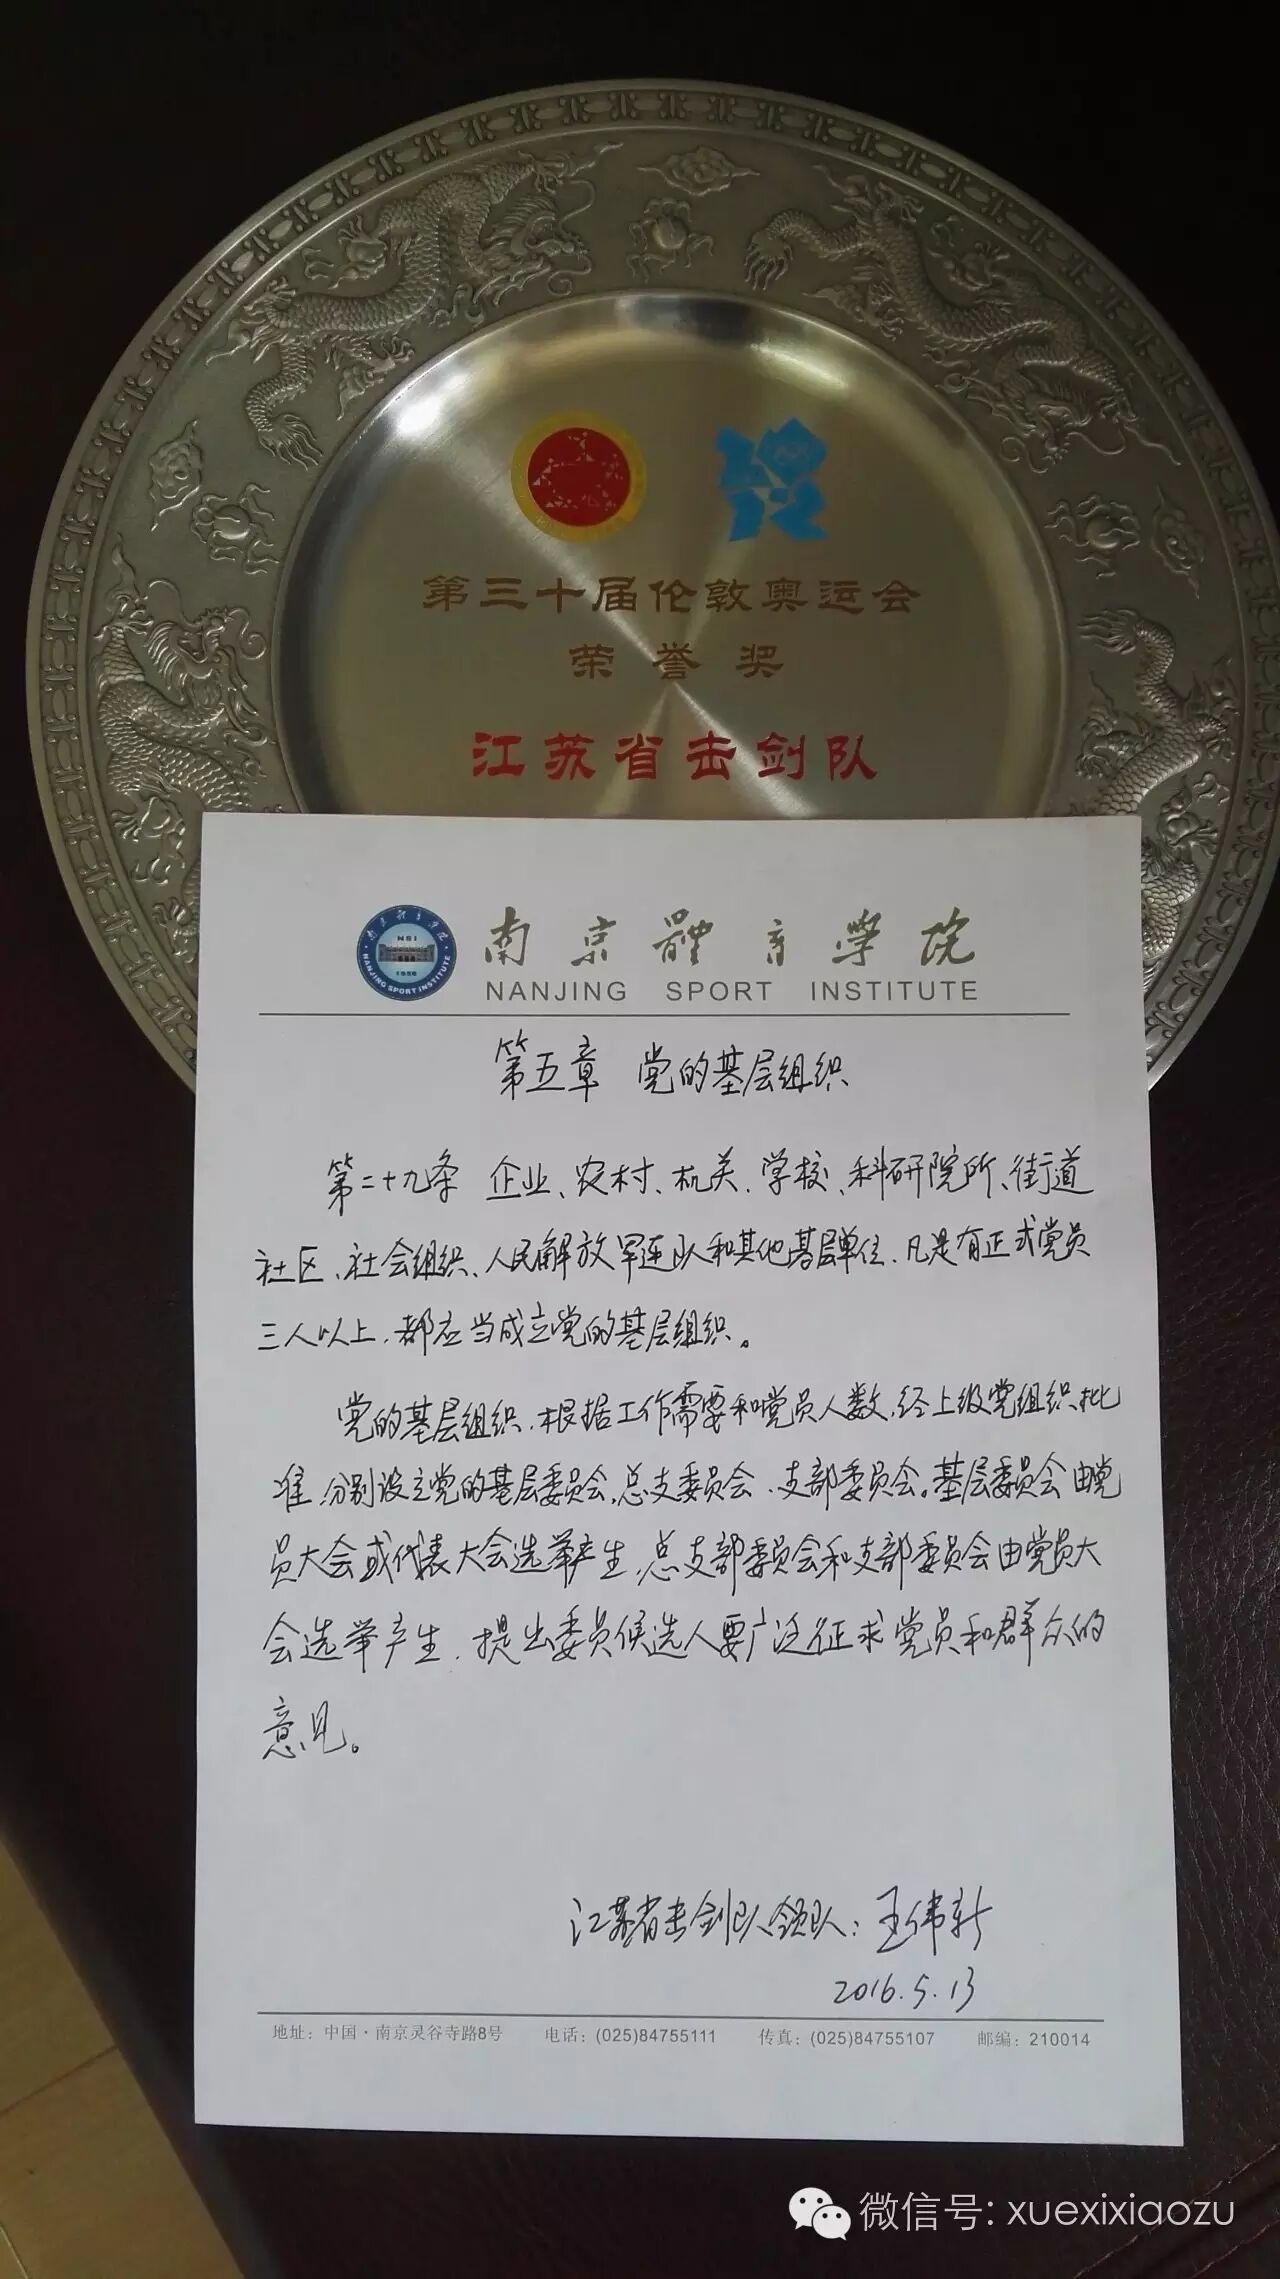 第三十届伦敦奥运会
荣誉奖
江苏省击剑队
南京體育學院
NSI
1956
NANJING SPORT INSTITUTE
NANJING SPORT INSTITUTE
第五章 党的基层组织
第二十九条 企业、农村、机关、学校、科研院所、街道
社区、社会组织、人民解放军连队和其他基层单位,凡是有正式党员
三人以上,都应当成立党的基层组织。
党的基层组织,根据工作需要和党员人数,经上级党组织批
准,分别设立党的基层委员会、总支委员会、支部委员会。基层委员会由党
员大会或代表大会选举产生,总支部委员会和支部委员会由党员大
会选举产生,提出委员候选人要广泛征求党员和群众的
意见。
江苏省击剑队领队:王伟新
2016.5.13
地址:中国·南京灵谷寺路8号 电话:(025)84755111 传真:(025)84755107 邮编:210014
微信号: xuexixiaozu